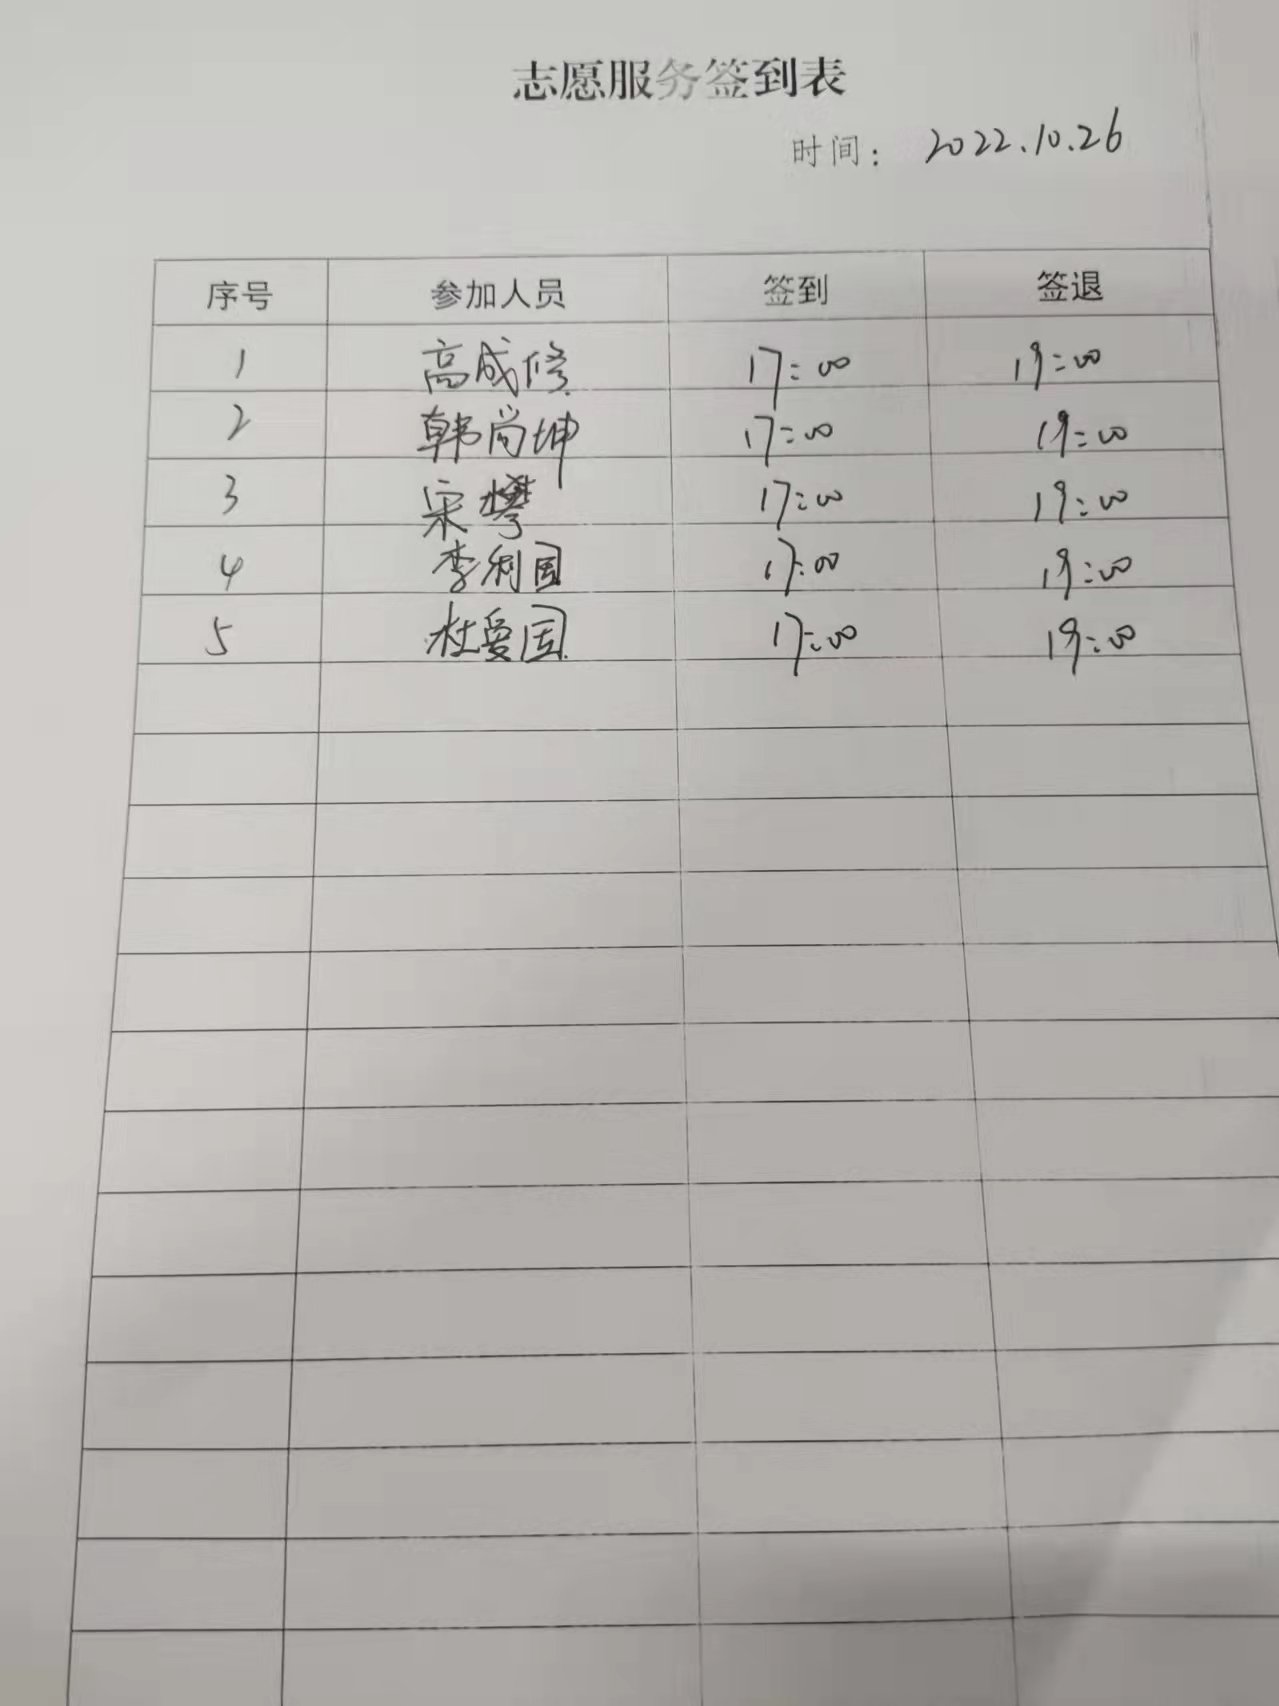 志愿服务签到表
时间： 2022.10.26
序号 参加人员 签到 签退
1 高成修 17:00 19:00
2 韩尚坤 17:00 19:00
3 宋 17:00 19:00
4 李利国 17:00 19:00
5 杜爱国 17:00 19:00